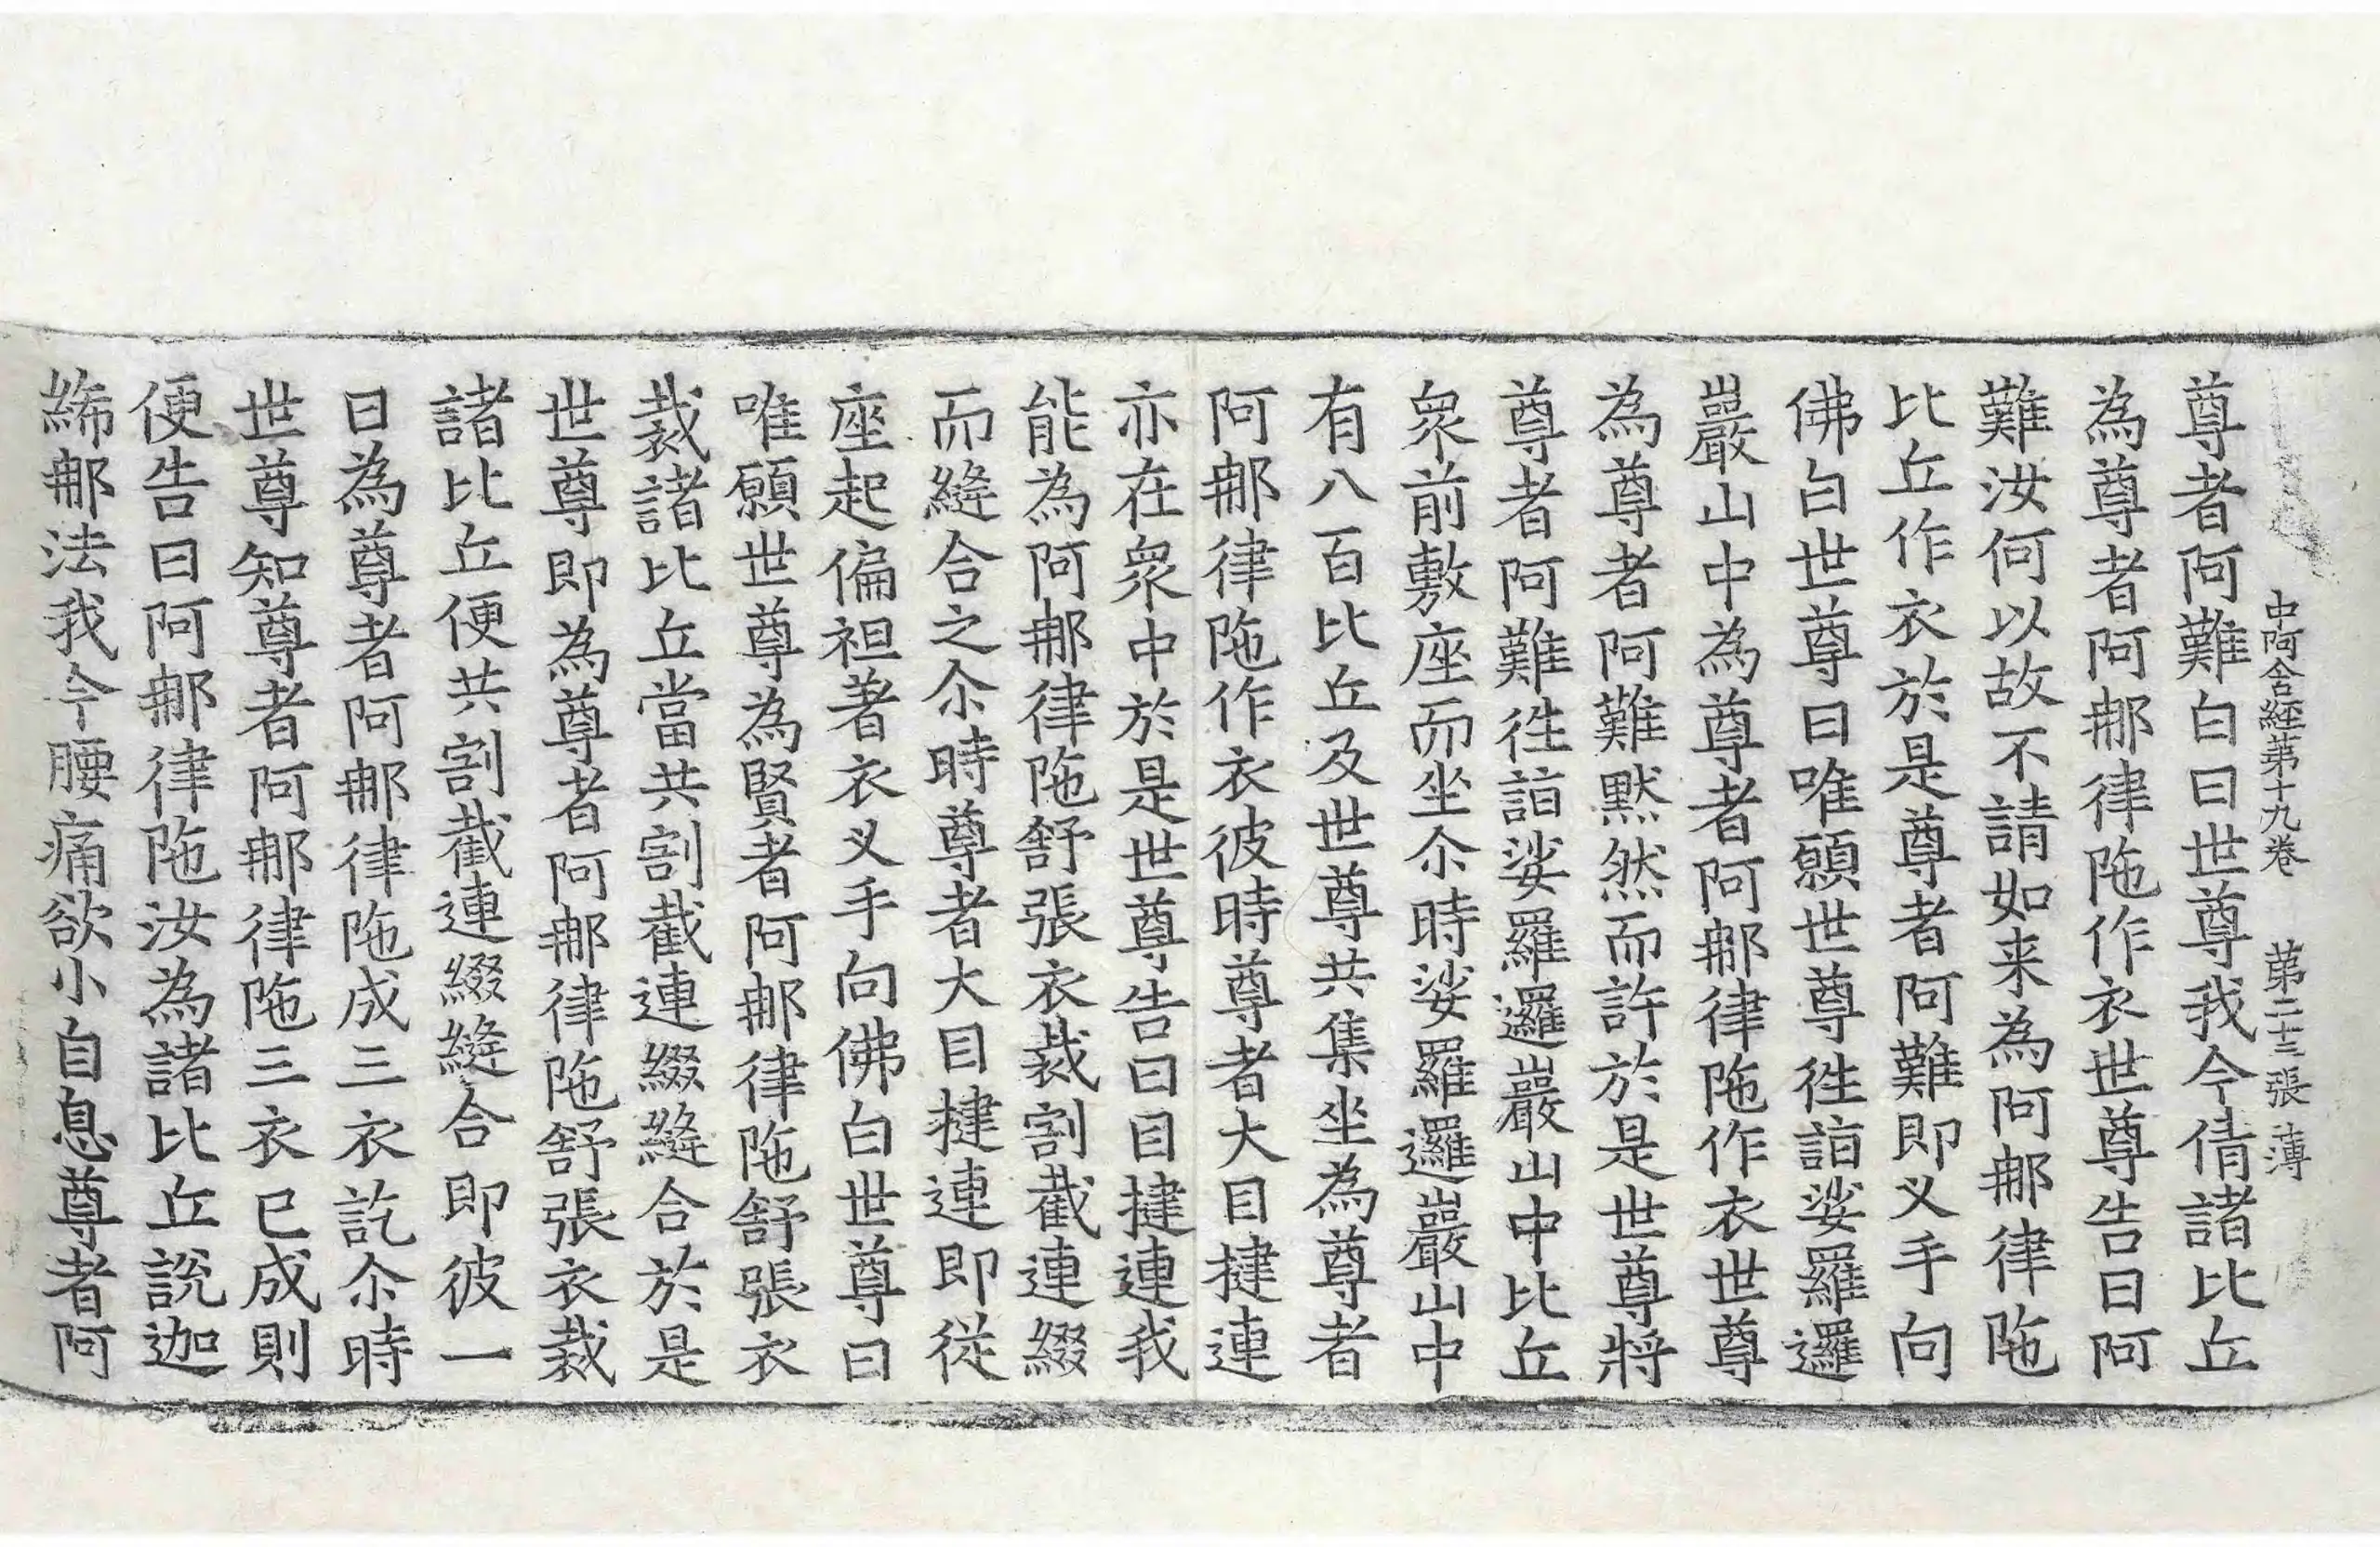 中阿含経第十九卷 第二十三張 薄
尊者阿難白曰世尊我今倩諸比丘
為尊者阿那律陁作衣世尊告曰阿
難汝何以故不請如来為阿那律陁
比丘作衣於是尊者阿難即叉手向
佛白世尊曰唯願世尊徃詣娑羅邏
巖山中為尊者阿那律陁作衣世尊
為尊者阿難默然而許於是世尊將
尊者阿難徃詣娑羅邏巖山中比丘
衆前敷座而坐尒時娑羅邏巖山中
有八百比丘及世尊共集坐為尊者
阿那律陁作衣彼時尊者大目揵連
亦在衆中於是世尊告曰目揵連我
能為阿那律陁舒張衣裁割截連綴
而縫合之尒時尊者大目揵連即従
座起偏袒著衣叉手向佛白世尊曰
唯願世尊為賢者阿那律陁舒張衣
裁諸比丘當共割截連綴縫合於是
世尊即為尊者阿那律陁舒張衣裁
諸比丘便共割截連綴縫合即彼一
日為尊者阿那律陁成三衣訖尒時
世尊知尊者阿那律陁三衣已成則
便告曰阿那律陁汝為諸比丘說迦
絺那法我今腰痛欲小自息尊者阿